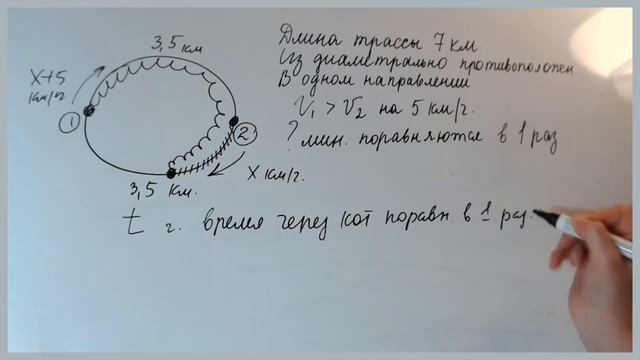 3,5 км
Х+5
км/г
1
2
3,5 км.
Х км/г.
Длина трассы 7 км
Из диаметрально противоположен
В одном направлении
V₁ > V₂ на 5 км/г.
? мин. поравняются в 1 раз
t г. время через кот поравн. в 1 раз.